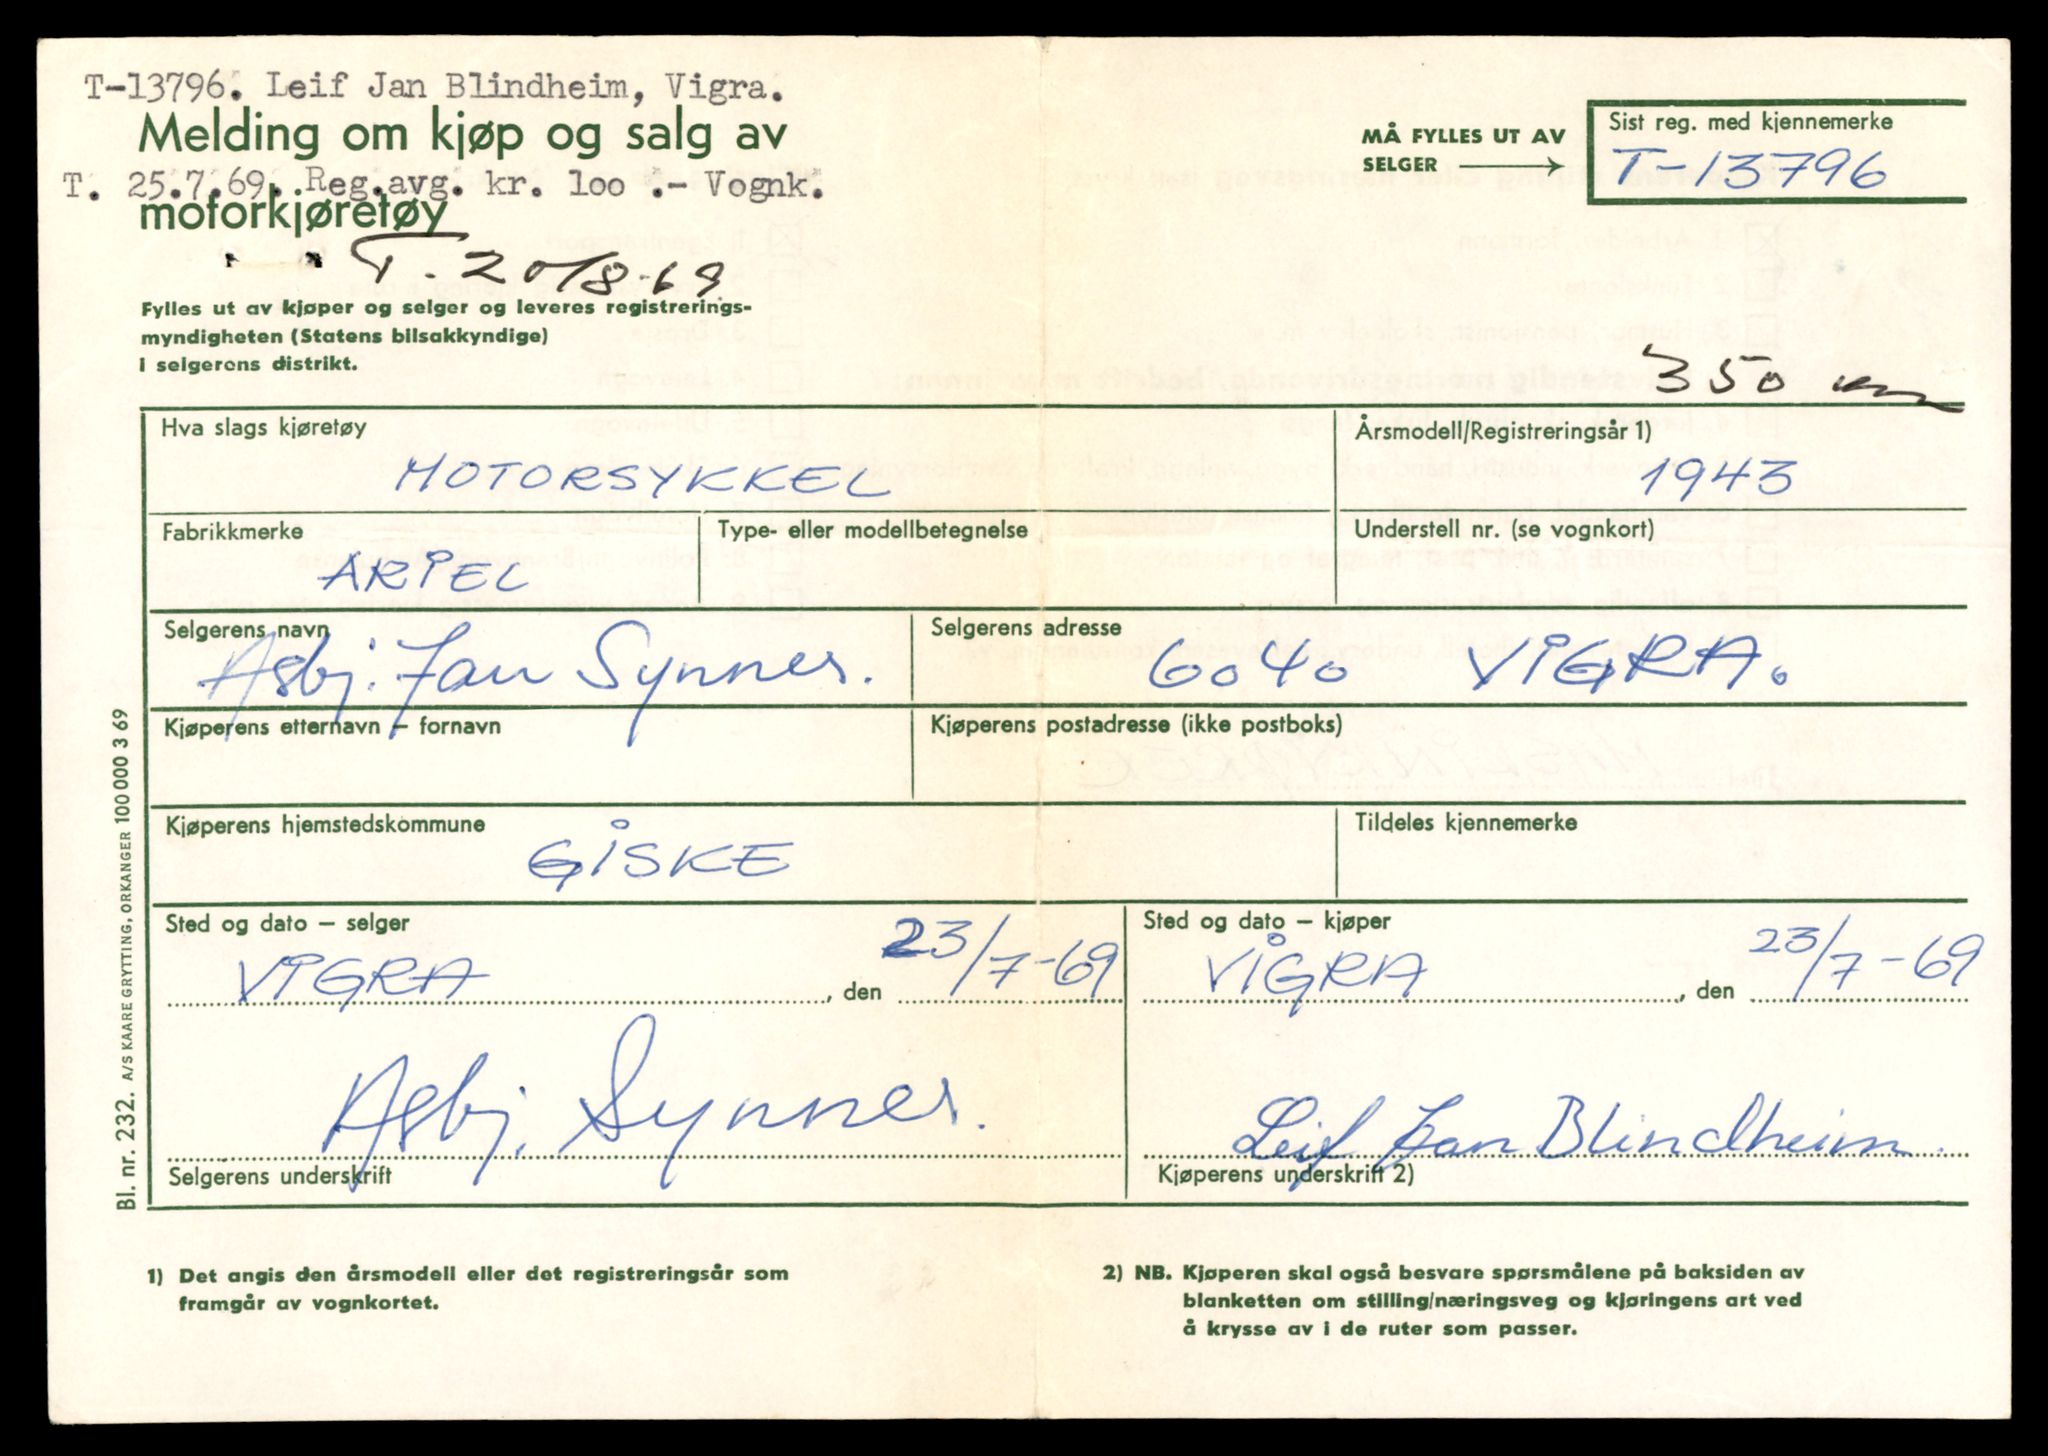 T-13796. Leif Jan Blindheim, Vigra.
Melding om kjøp og salg av
T. 25.7.69. Reg.avg. kr. loo .- Vognk.
motorkjøretøy
T. 20/8-69
Fylles ut av kjøper og selger og leveres registrerings-
myndigheten (Statens bilsakkyndige)
i selgerens distrikt.
MÅ FYLLES UT AV
SELGER
Sist reg. med kjennemerke
T-13796
350
Hva slags kjøretøy
MOTORSYKKEL
Årsmodell/Registreringsår 1)
1943
Fabrikkmerke
ARIEL
Type- eller modellbetegnelse
Understell nr. (se vognkort)
Selgerens navn
Asbj. Jan Synnes.
Selgerens adresse
6040 VIGRA.
Kjøperens etternavn – fornavn
Kjøperens postadresse (ikke postboks)
Kjøperens hjemstedskommune
GISKE
Tildeles kjennemerke
Sted og dato – selger
VIGRA, den 23/7-69
Sted og dato – kjøper
VIGRA, den 23/7-69
Asbj. Synnes.
Selgerens underskrift
Leif Jan Blindheim.
Kjøperens underskrift 2)
Bl. nr. 232. A/S KAARE GRYTTING, ORKANGER 100 000 3 69
1) Det angis den årsmodell eller det registreringsår som
framgår av vognkortet.
2) NB. Kjøperen skal også besvare spørsmålene på baksiden av
blanketten om stilling/næringsveg og kjøringens art ved
å krysse av i de ruter som passer.